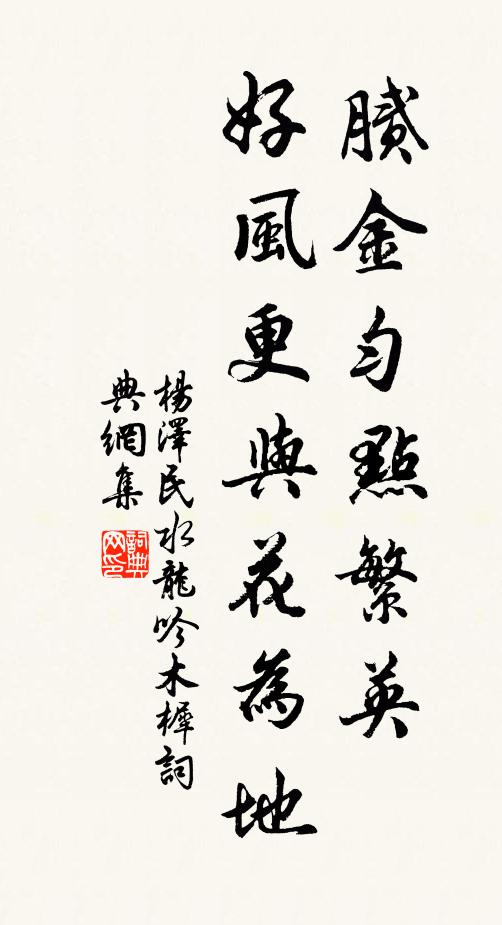 膩金勻點繁英
好風更與花為地
楊澤民水龍吟木樨詞
典網集
詞典
网印